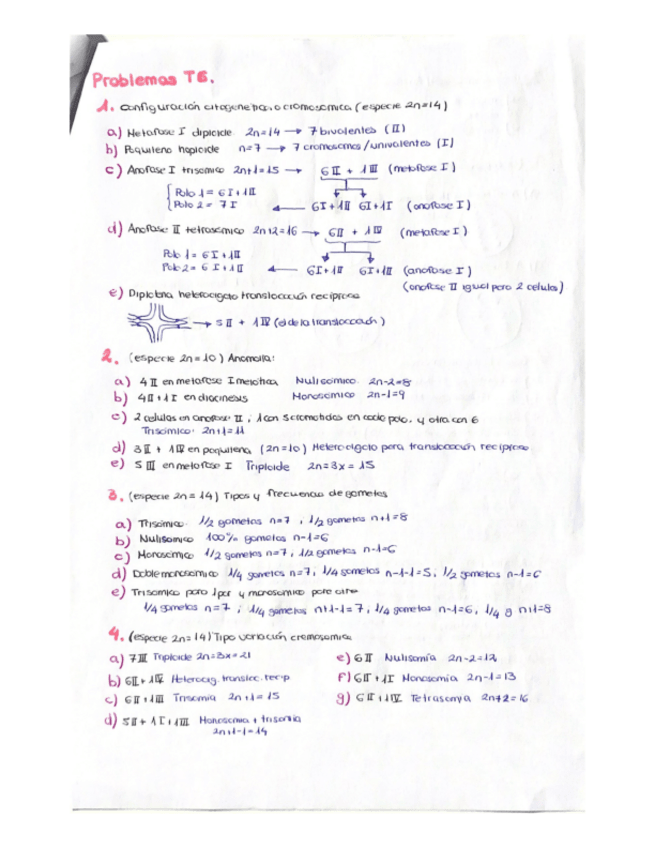 Problemas T6.
1. Configuración citogenética o cromosómica (especie 2n=14)
a) Metafase I diploide 2n=14 → 7 bivalentes (II)
b) Paquiteno haploide n=7 → 7 cromosomas/univalentes (I)
c) Anafase I trisómico 2n+1=15 → 6II + 1III (metafase I)
Polo 1= 6I+1II
Polo 2= 7I ← 6I+1II 6I+1I (anafase I)
d) Anafase II tetrasómico 2n+2=16 → 6II + 1IV (metafase I)
Polo 1= 6I+1II
Polo 2= 6I+1II ← 6I+1II 6I+1II (anafase I)
(anafase II igual para 2 células)
e) Diplotena heterocigoto translocación recíproca
→ 5II + 1IV (el de la translocación)
2. (especie 2n=10) Anomalía:
a) 4II en metafase I meiótica Nulisómico 2n-2=8
b) 4II+1I en diacinesis Monosómico 2n-1=9
c) 2 células en anafase II, 1 con 5 cromátidas en cada polo, y otra con 6
Trisómico: 2n+1=11
d) 3II + 1IV en paquitena (2n=10) Heterocigoto para translocación recíproca
e) 5III en metafase I Triploide 2n=3x=15
3. (especie 2n=14) Tipos y frecuencias de gametos
a) Trisómico 1/2 gametos n=7, 1/2 gametos n+1=8
b) Nulisómico 100% gametos n-1=6
c) Monosómico 1/2 gametos n=7, 1/2 gametos n-1=6
d) Doble monosómico 1/4 gametos n=7, 1/4 gametos n-1-1=5, 1/2 gametos n-1=6
e) Trisómico para 1 par y monosómico para otro
1/4 gametos n=7; 1/4 gametos n+1-1=7, 1/4 gametos n-1=6, 1/4 g n+1=8
4. (especie 2n=14) Tipo variación cromosómica
a) 7III Triploide 2n=3x=21
b) 6II+1IV Heterocig. transloc. recíp
c) 6II+1III Trisomía 2n+1=15
d) 5II+1I+1III Monosomía + trisomía
2n+1-1=14
e) 6II Nulisomía 2n-2=12
f) 6II+1I Monosomía 2n-1=13
g) 6II+1IV Tetrasomía 2n+2=16